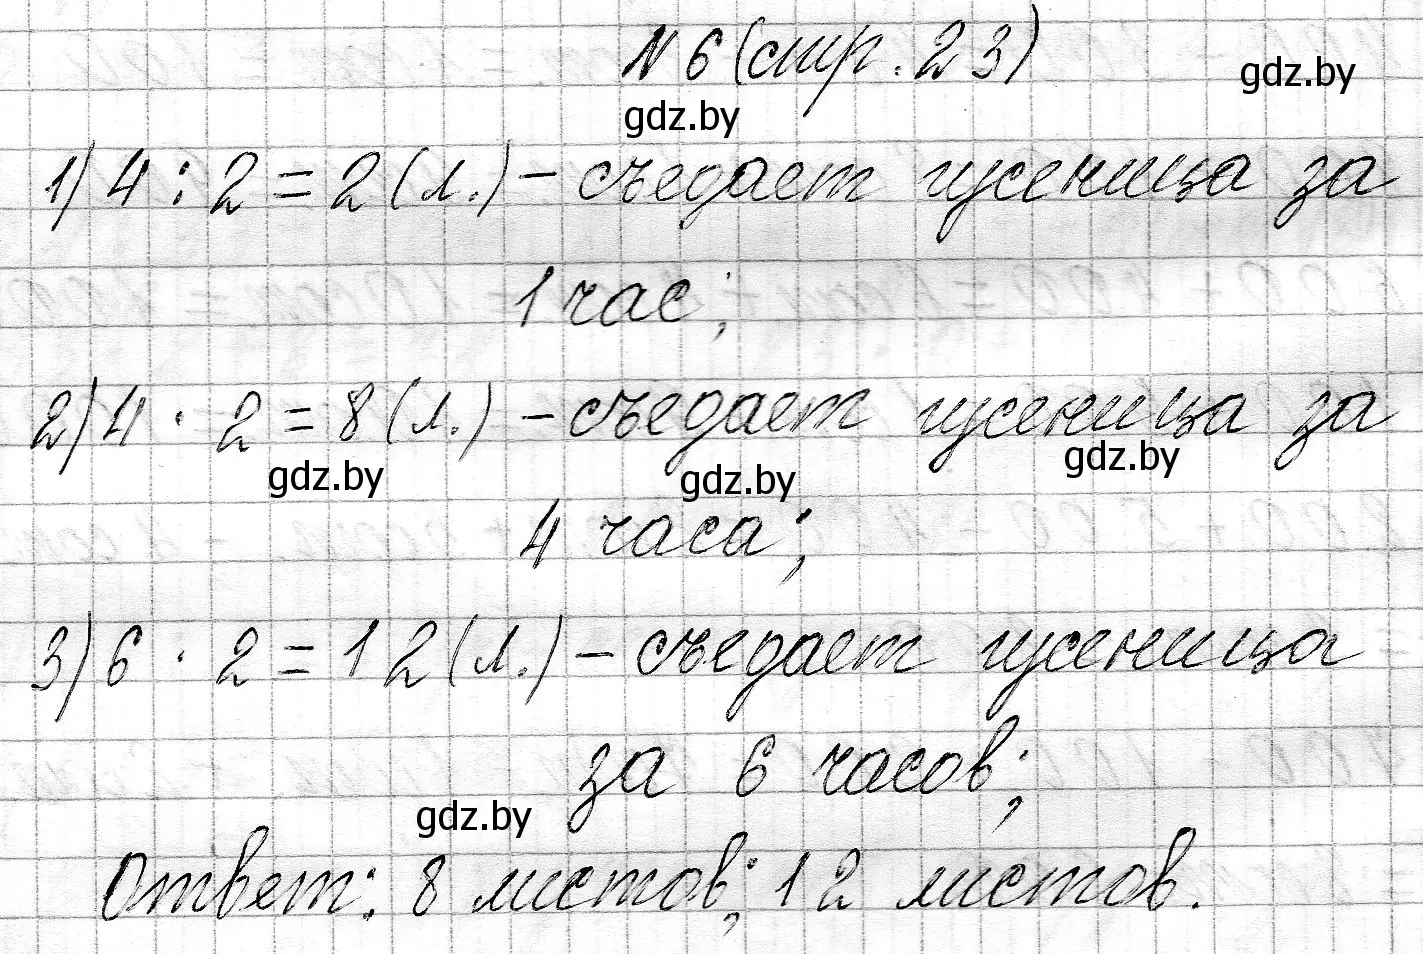 N 6 (стр. 23)
gdz.by
gdz.by
1) 4 : 2 = 2 (л.) – съедает гусеница за
1 час;
2) 4 · 2 = 8 (л.) – съедает гусеница за
gdz.by gdz.by gdz.by
4 часа;
3) 6 · 2 = 12 (л.) – съедает гусеница
за 6 часов;
gdz.by
Ответ: 8 листов; 12 листов.